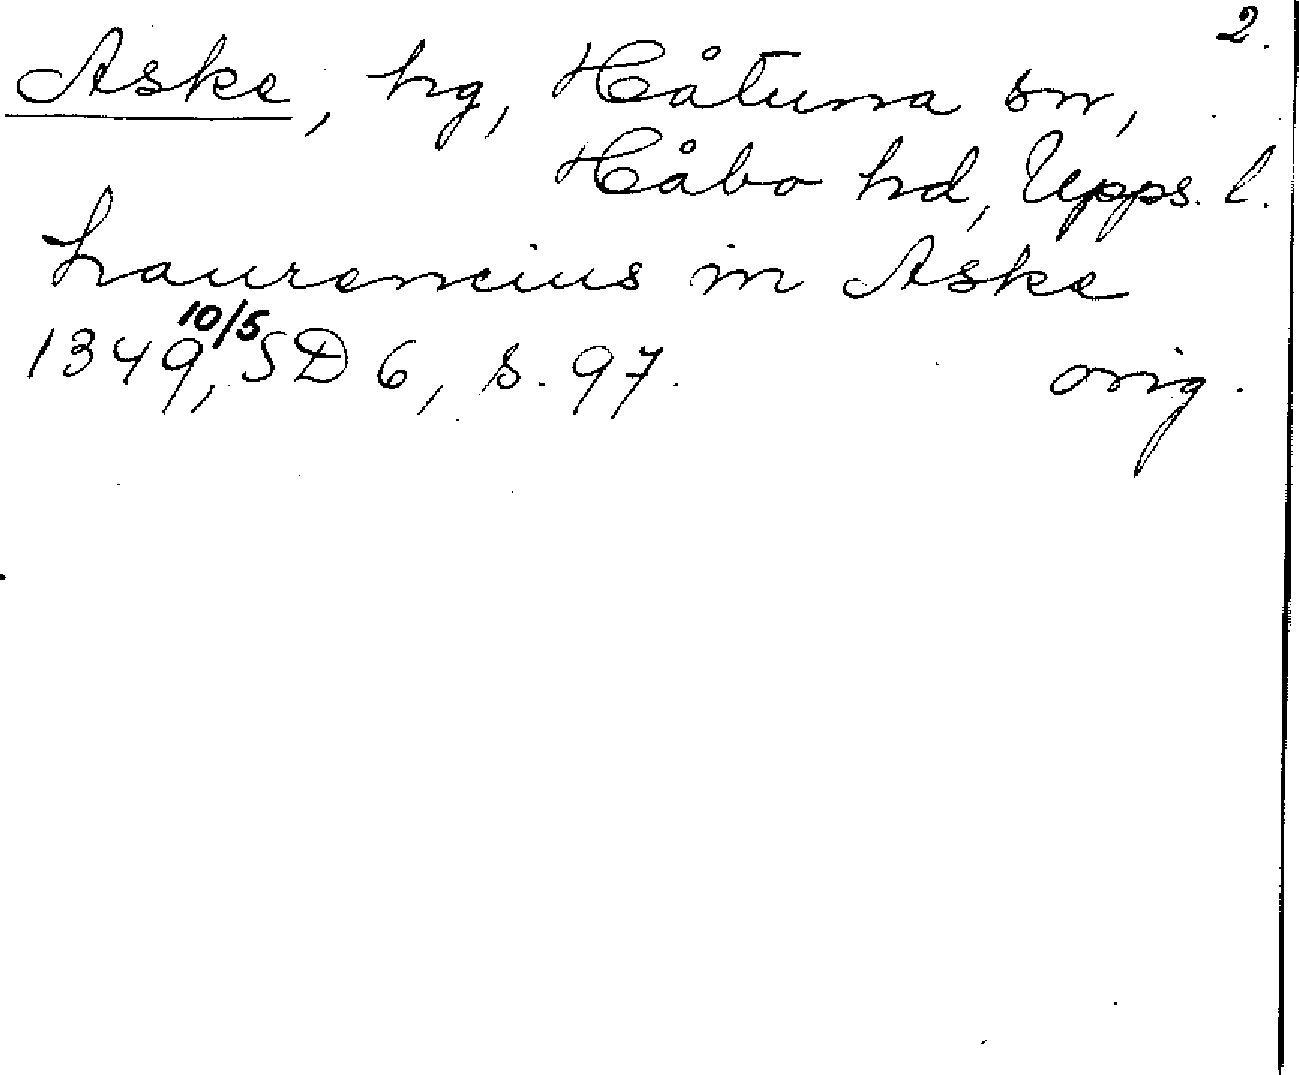 2.
Aske, hg, Håtuna sn,
Håbo hd, Upps. l.
Laurencius in Aske
1349 10/5, SD 6, s. 97. orig.